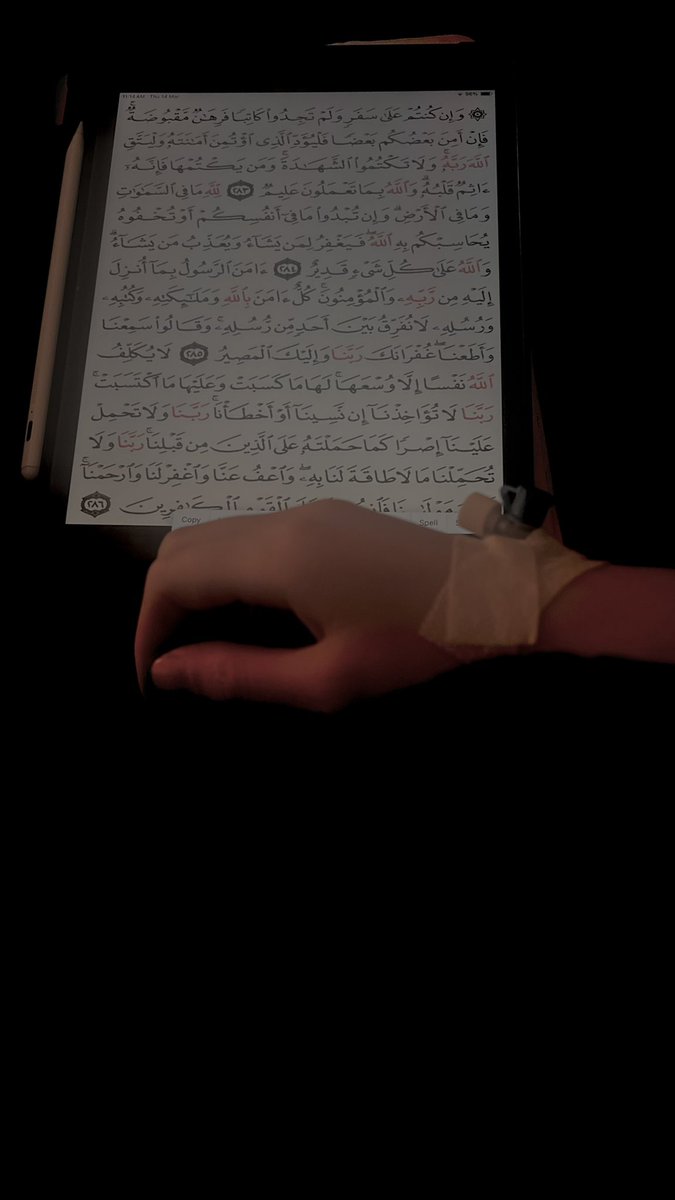 11:14 AM Thu 14 Mar 56%
۞ وَإِن كُنتُمْ عَلَىٰ سَفَرٍ وَلَمْ تَجِدُوا۟ كَاتِبًا فَرِهَـٰنٌ مَّقْبُوضَةٌ ۖ
فَإِنْ أَمِنَ بَعْضُكُم بَعْضًا فَلْيُؤَدِّ ٱلَّذِى ٱؤْتُمِنَ أَمَـٰنَتَهُۥ وَلْيَتَّقِ
ٱللَّهَ رَبَّهُۥ ۗ وَلَا تَكْتُمُوا۟ ٱلشَّهَـٰدَةَ ۚ وَمَن يَكْتُمْهَا فَإِنَّهُۥٓ
ءَاثِمٌ قَلْبُهُۥ ۗ وَٱللَّهُ بِمَا تَعْمَلُونَ عَلِيمٌ ٢٨٣ لِّلَّهِ مَا فِى ٱلسَّمَـٰوَٰتِ
وَمَا فِى ٱلْأَرْضِ ۗ وَإِن تُبْدُوا۟ مَا فِىٓ أَنفُسِكُمْ أَوْ تُخْفُوهُ
يُحَاسِبْكُم بِهِ ٱللَّهُ ۖ فَيَغْفِرُ لِمَن يَشَآءُ وَيُعَذِّبُ مَن يَشَآءُ ۗ
وَٱللَّهُ عَلَىٰ كُلِّ شَىْءٍ قَدِيرٌ ٢٨٤ ءَامَنَ ٱلرَّسُولُ بِمَآ أُنزِلَ
إِلَيْهِ مِن رَّبِّهِۦ وَٱلْمُؤْمِنُونَ ۚ كُلٌّ ءَامَنَ بِٱللَّهِ وَمَلَـٰٓئِكَتِهِۦ وَكُتُبِهِۦ
وَرُسُلِهِۦ لَا نُفَرِّقُ بَيْنَ أَحَدٍ مِّن رُّسُلِهِۦ ۚ وَقَالُوا۟ سَمِعْنَا
وَأَطَعْنَا ۖ غُفْرَانَكَ رَبَّنَا وَإِلَيْكَ ٱلْمَصِيرُ ٢٨٥ لَا يُكَلِّفُ
ٱللَّهُ نَفْسًا إِلَّا وُسْعَهَا ۚ لَهَا مَا كَسَبَتْ وَعَلَيْهَا مَا ٱكْتَسَبَتْ ۗ
رَبَّنَا لَا تُؤَاخِذْنَآ إِن نَّسِينَآ أَوْ أَخْطَأْنَا ۚ رَبَّنَا وَلَا تَحْمِلْ
عَلَيْنَآ إِصْرًا كَمَا حَمَلْتَهُۥ عَلَى ٱلَّذِينَ مِن قَبْلِنَا ۚ رَبَّنَا وَلَا
تُحَمِّلْنَا مَا لَا طَاقَةَ لَنَا بِهِۦ ۖ وَٱعْفُ عَنَّا وَٱغْفِرْ لَنَا وَٱرْحَمْنَآ ۚ
ٱلْقَوْمِ ٱلْكَـٰفِرِينَ ٢٨٦
Copy Spell